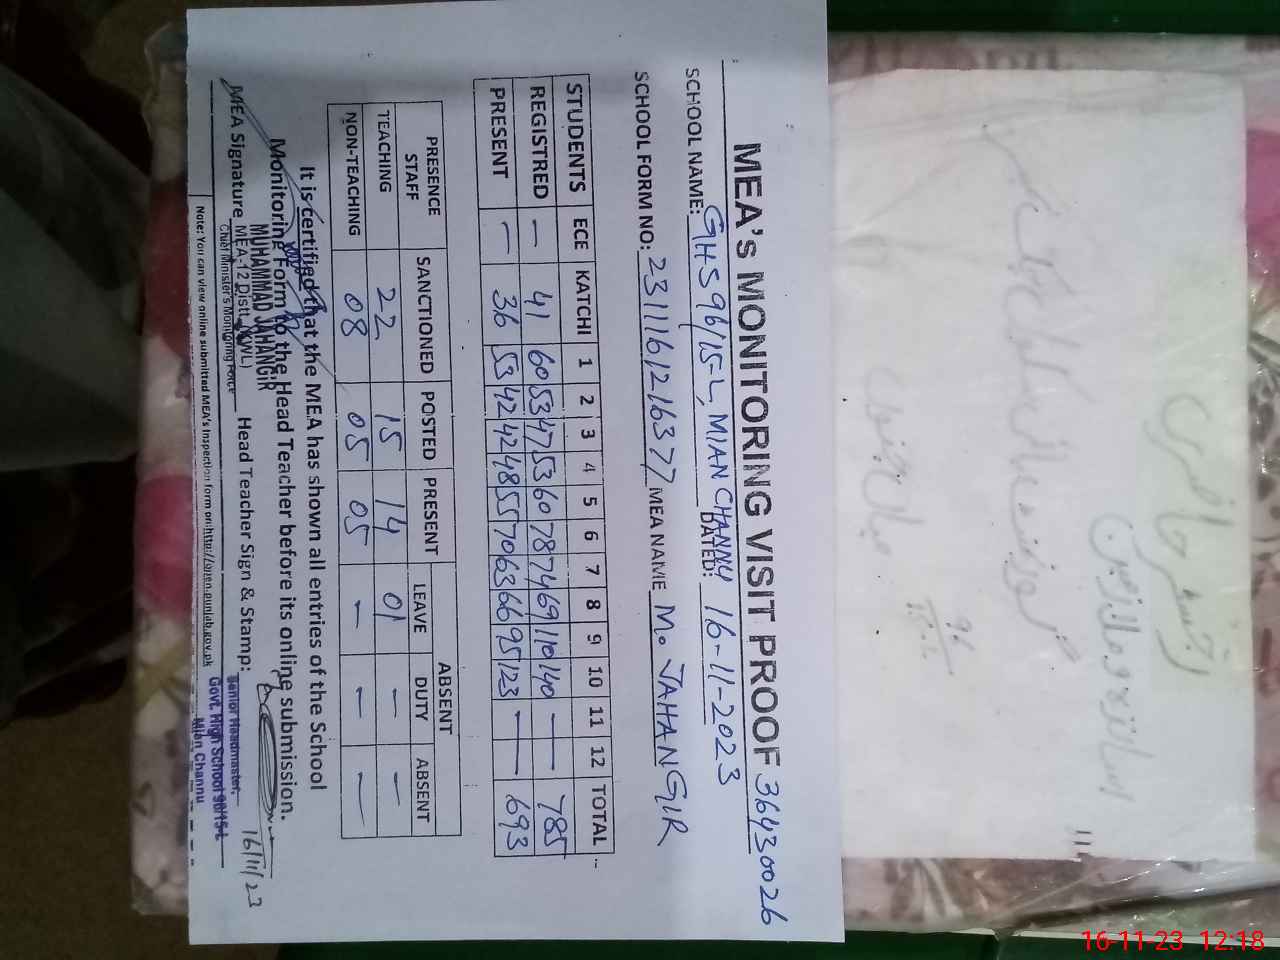 MEA's MONITORING VISIT PROOF 36430026
SCHOOL NAME: GHS 96/15-L, MIAN CHANNU DATED: 16-11-2023
SCHOOL FORM NO: 231116121637 77 MEA NAME M. JAHANGIR
STUDENTS ECE KATCHI 1 2 3 4 5 6 7 8 9 10 11 12 TOTAL
REGISTRED — 41 60 53 47 53 60 78 74 69 110 140 — — 785
PRESENT — 36 53 42 42 48 55 70 63 66 95 123 — — 693
PRESENCE STAFF SANCTIONED POSTED PRESENT ABSENT
LEAVE DUTY ABSENT
TEACHING 22 15 14 01 — —
NON-TEACHING 08 05 05 — — —
It is certified that the MEA has shown all entries of the School
Monitoring Form to the Head Teacher before its online submission.
MUHAMMAD JAHANGIR
MEA Signature MEA-12 Distt. (KWL) Head Teacher Sign & Stamp: 16/11/23
Chief Minister's Monitoring Force
Senior Headmaster,
Govt. High School 96/15-L
Mian Channu
Note: You can view online submitted MEA's inspection form on:http://open.punjab.gov.pk
اساتذہ و ملازمین
96
15-L
میاں چنوں
16-11-23 12:18